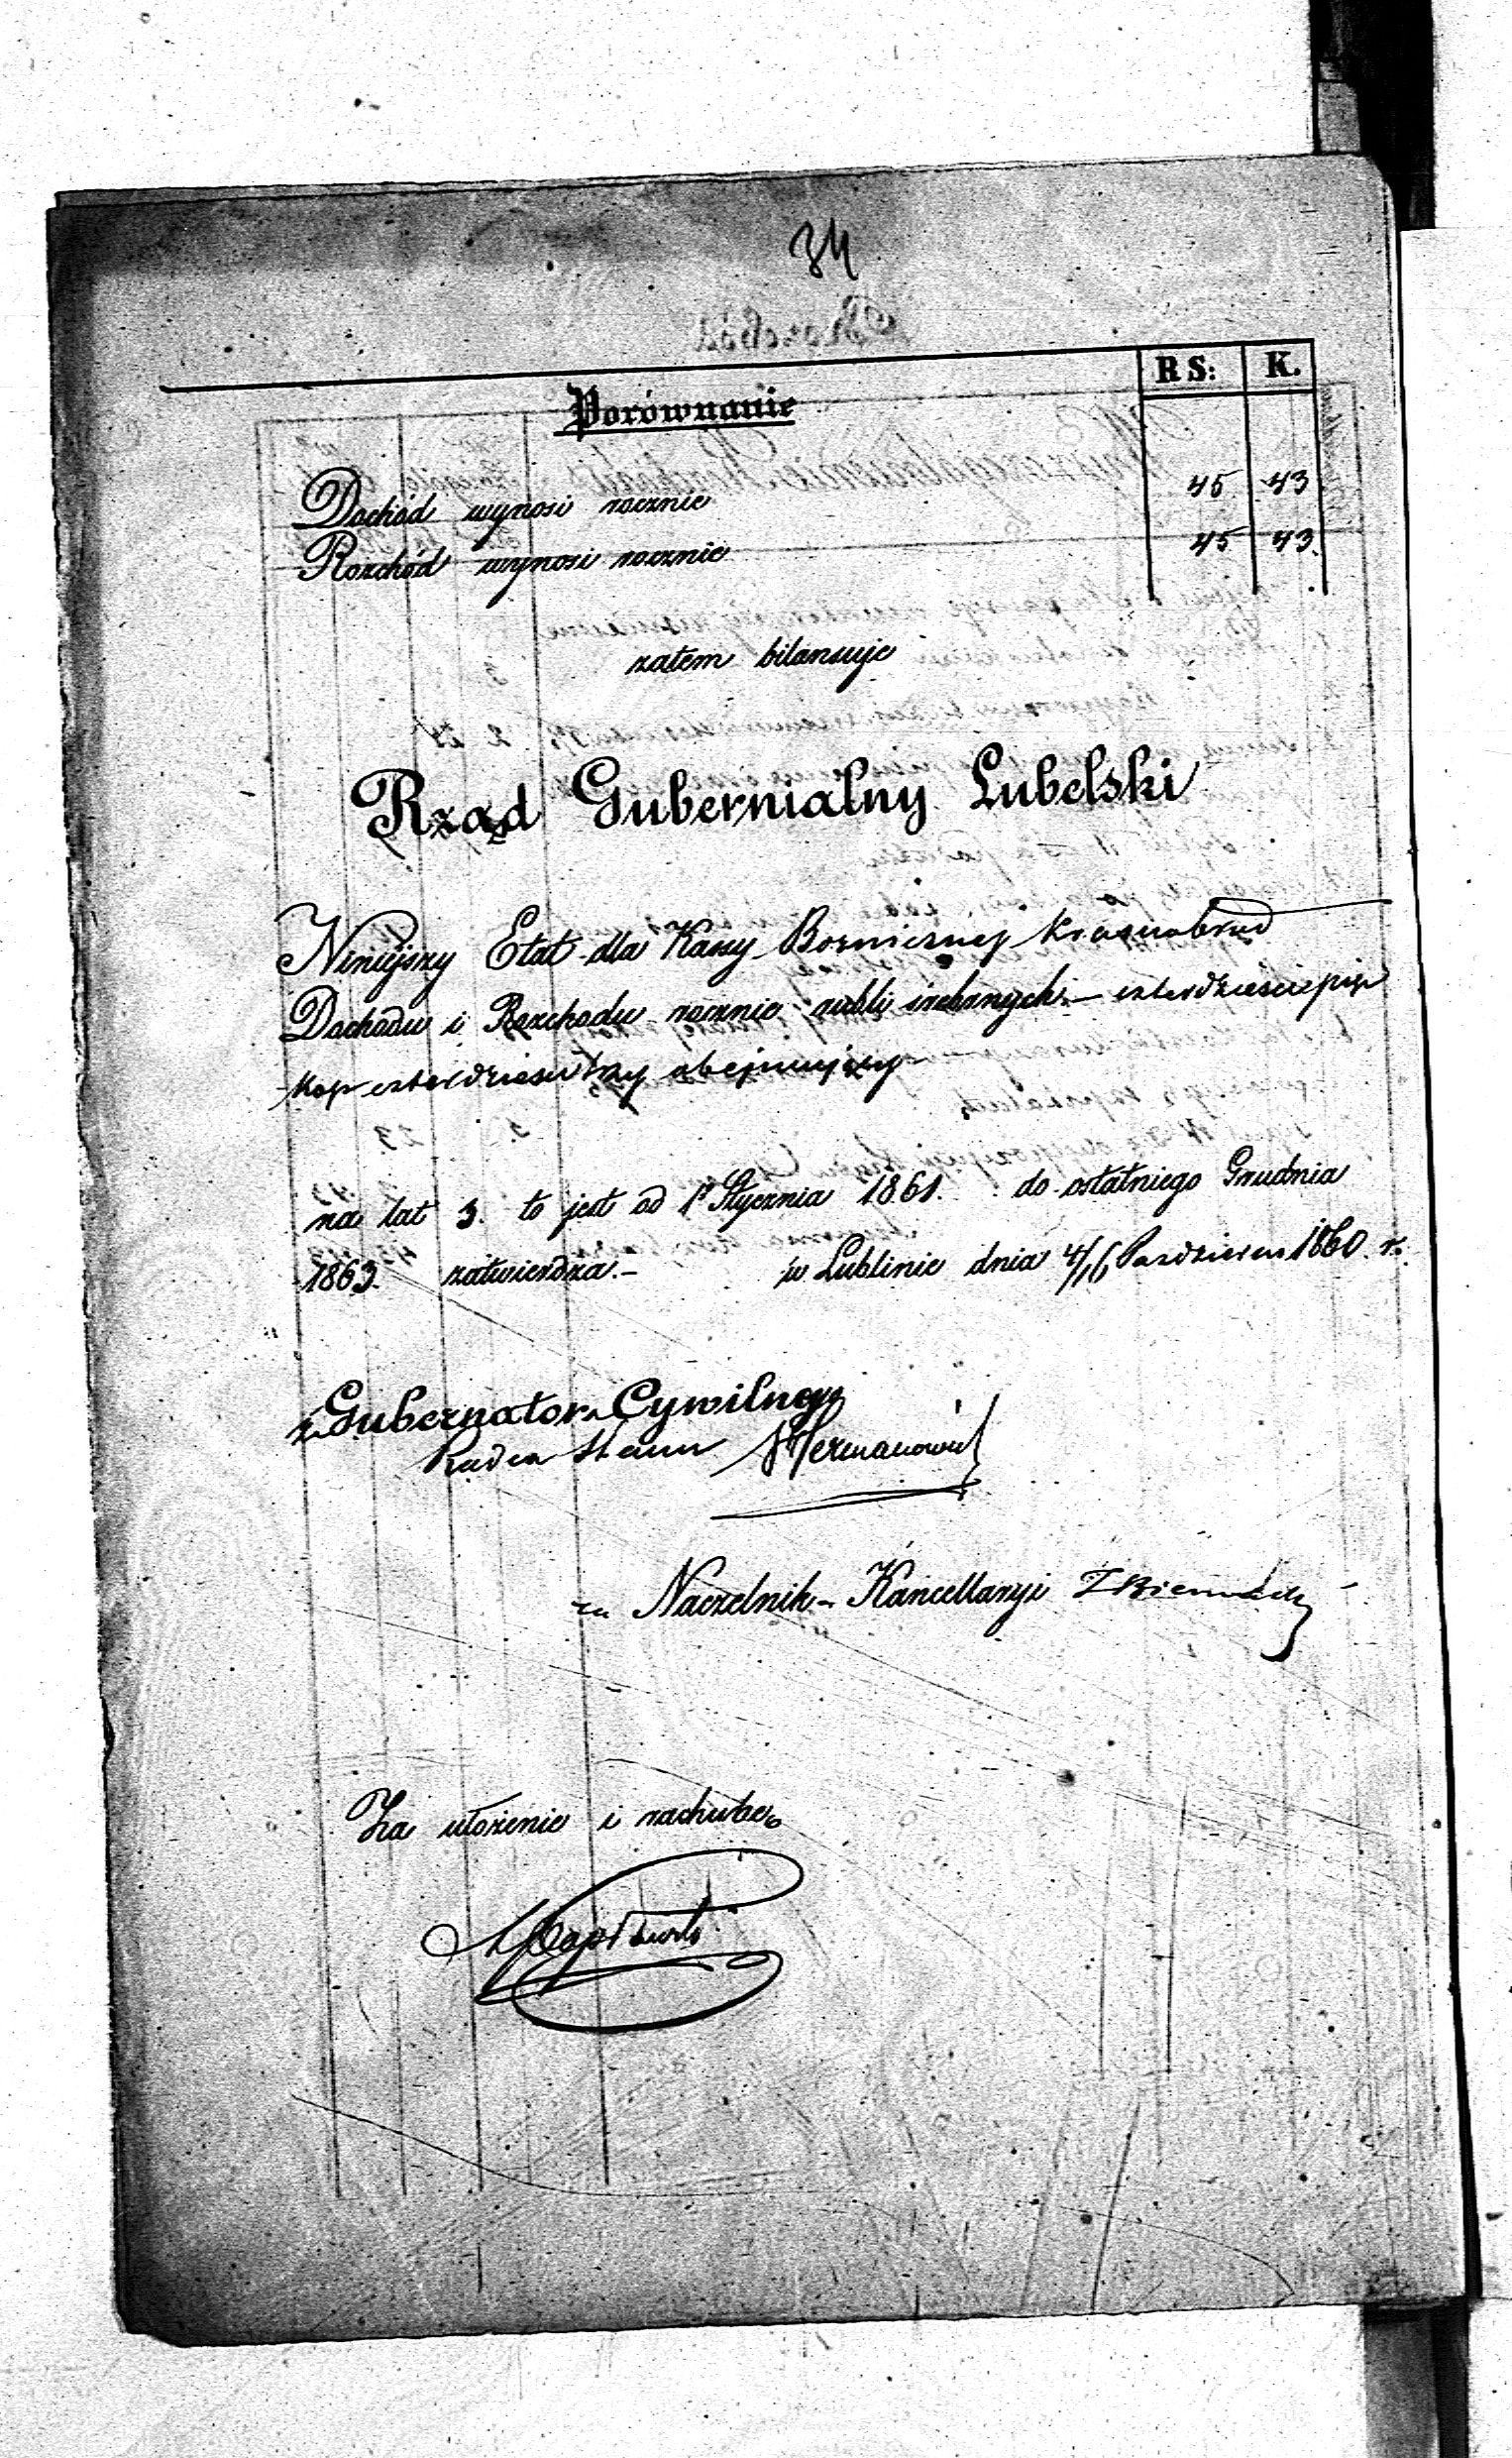 34
RS: K.
Porównanie
Dochód wynosi rocznie 45 43
Rozchód wynosi rocznie 45 43.
zatem bilansuje
Rząd Gubernialny Lubelski
Niniejszy Etat dla Kassy Bożniczney Krasnobród
Dochodu i Rozchodu rocznie rubli srebrnych – czterdzieści pięć
kop czterdzieści trzy obejmujący
na lat 3. to jest od 1o Stycznia 1861. do ostatniego Grudnia
1863. zatwierdza.– w Lublinie dnia 4/16 Pazdziern 1860. r.
z. Gubernator Cywilny
Radca Stanu
za Naczelnik Kancellaryi
Za ułożenie i rachubę